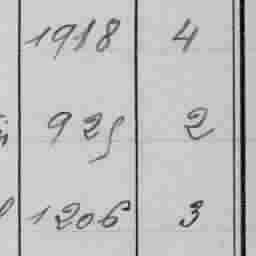 1918 4
925 2
1206 3